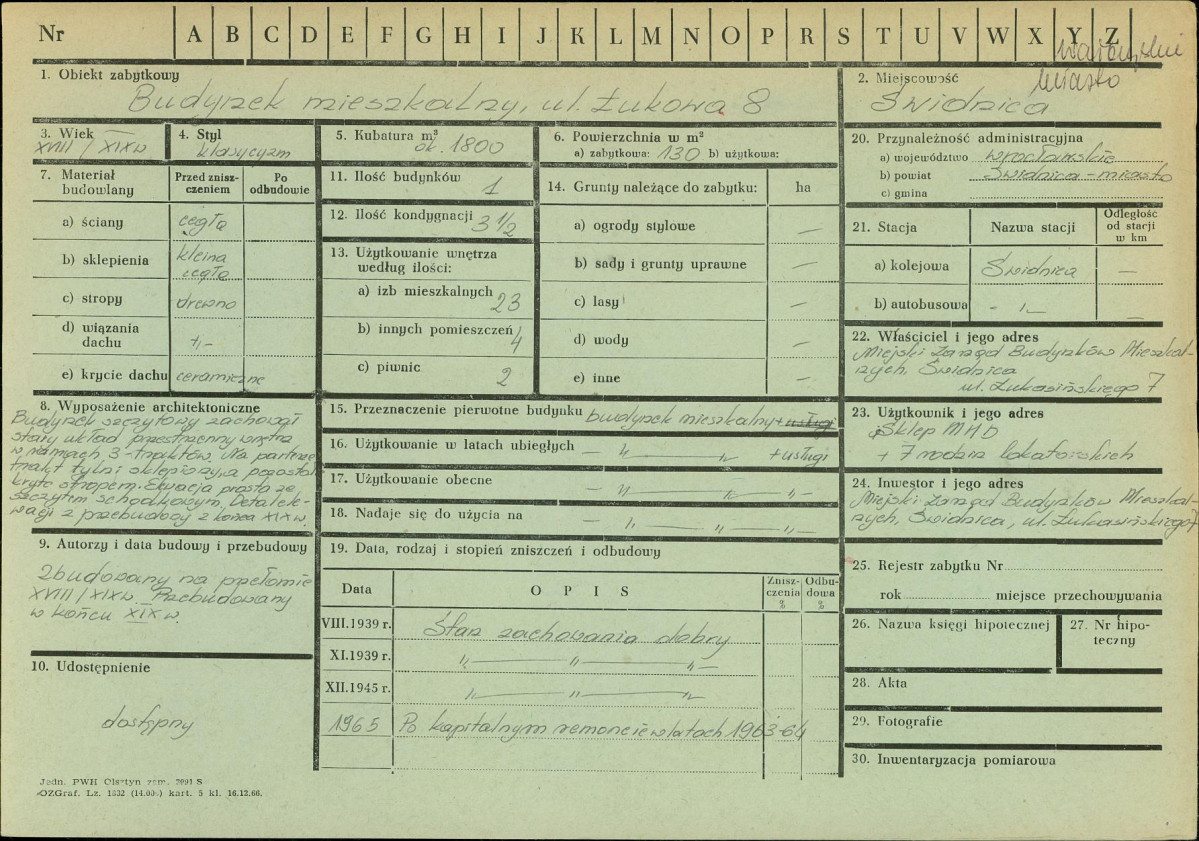 Nr A B C D E F G H I J K L M N O P R S T U V W X Y Z
miasto
1. Obiekt zabytkowy
Budynek mieszkalny, ul. Łukowa 8
2. Miejscowość
Świdnica
3. Wiek
XVIII/XIXw
4. Styl
klasycyzm
5. Kubatura m³
ok. 1800
6. Powierzchnia w m²
a) zabytkowa: 130 b) użytkowa:
7. Materiał budowlany
Przed zniszczeniem
Po odbudowie
a) ściany cegła
b) sklepienia kleina
cegła
c) stropy drewno
d) wiązania dachu -„-
e) krycie dachu ceramiczne
8. Wyposażenie architektoniczne
Budynek szczytowy zachował
stary układ przestrzenny wnętrz
w ramach 3-traktów. Na parterze
trakt tylni sklepiony, a pozostałe
kryte stropem. Elewacja prosta ze
szczytem schodkowym. Detal ele-
wacji z przebudowy z końca XIXw.
9. Autorzy i data budowy i przebudowy
Zbudowany na przełomie
XVIII/XIXw. Przebudowany
w końcu XIXw.
10. Udostępnienie
dostępny
Jedn. PWH Olsztyn zam. 2991 S
OZGraf. Lz. 1332 (14.000) kart. 5 kl. 16.12.66.
11. Ilość budynków 1
12. Ilość kondygnacji 3 1/2
13. Użytkowanie wnętrza
według ilości:
a) izb mieszkalnych 23
b) innych pomieszczeń 4
c) piwnic 2
14. Grunty należące do zabytku: ha
a) ogrody stylowe —
b) sady i grunty uprawne —
c) lasy —
d) wody —
e) inne —
15. Przeznaczenie pierwotne budynku budynek mieszkalny + usługi
16. Użytkowanie w latach ubiegłych — „ — „ + usługi
17. Użytkowanie obecne „ — „ — „ —
18. Nadaje się do użycia na — „ — „ — „ —
19. Data, rodzaj i stopień zniszczeń i odbudowy
Data
O P I S
Zniszczenia %
Odbudowa %
VIII.1939 r. Stan zachowania dobry
XI.1939 r. „ — „ — „ —
XII.1945 r. „ — „ — „
1965 Po kapitalnym remoncie w latach 1963-64
20. Przynależność administracyjna
a) województwo wrocławskie
b) powiat Świdnica - miasto
c) gmina
21. Stacja
Nazwa stacji
Odległość od stacji w km
a) kolejowa Świdnica —
b) autobusowa - „ - —
22. Właściciel i jego adres
Miejski Zarząd Budynków Mieszkal-
nych, Świdnica
ul. Łukasińskiego 7
23. Użytkownik i jego adres
Sklep MHD
+ 7 rodzin lokatorskich
24. Inwestor i jego adres
Miejski Zarząd Budynków Mieszkal-
nych, Świdnica, ul. Łukasińskiego 7
25. Rejestr zabytku Nr
rok miejsce przechowywania
26. Nazwa księgi hipotecznej
27. Nr hipoteczny
28. Akta
29. Fotografie
30. Inwentaryzacja pomiarowa